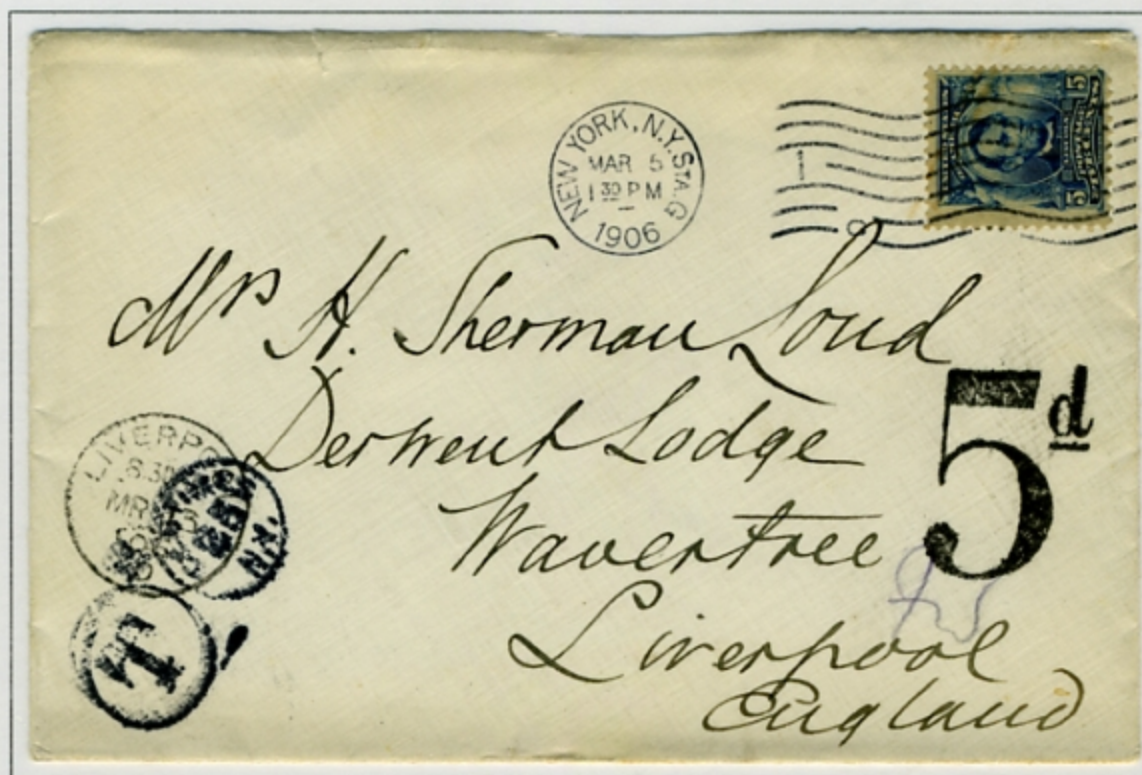 NEW YORK, N.Y. STA. G
MAR 5
1 30 PM
1906
1
5 5
Mrs H. Sherman Loud
Derwent Lodge
Wavertree
Liverpool
England
5d
LIVERPO
MR
T